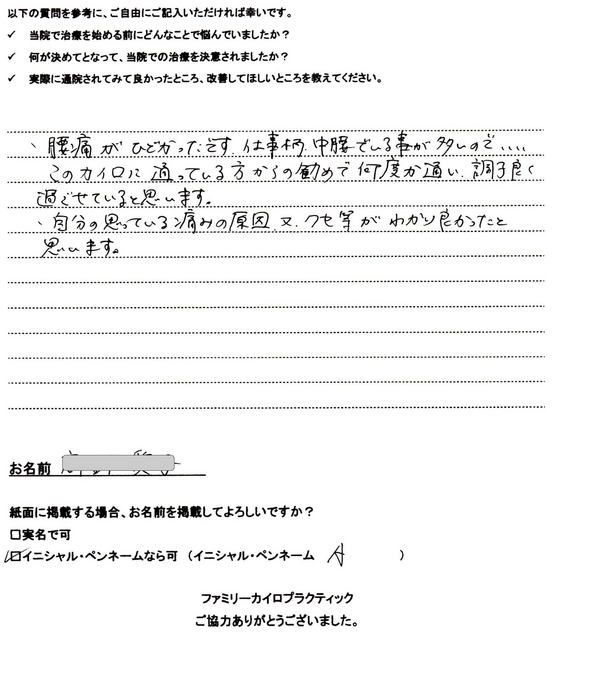 以下の質問を参考に、ご自由にご記入いただければ幸いです。
✓ 当院で治療を始める前にどんなことで悩んでいましたか？
✓ 何が決めてとなって、当院での治療を決意されましたか？
✓ 実際に通院されてみて良かったところ、改善してほしいところを教えてください。
、腰痛がひどかったです、仕事柄、中腰でいる事が多いので、、、、
このカイロに通っている方からの勧めで何度か通い、調子良く
過ごせていると思います。
・自分の思っている痛みの原因、又、クセ等がわかり良かったと
思います。
お名前
紙面に掲載する場合、お名前を掲載してよろしいですか？
□実名で可
☑イニシャル・ペンネームなら可 （イニシャル・ペンネーム A ）
ファミリーカイロプラクティック
ご協力ありがとうございました。